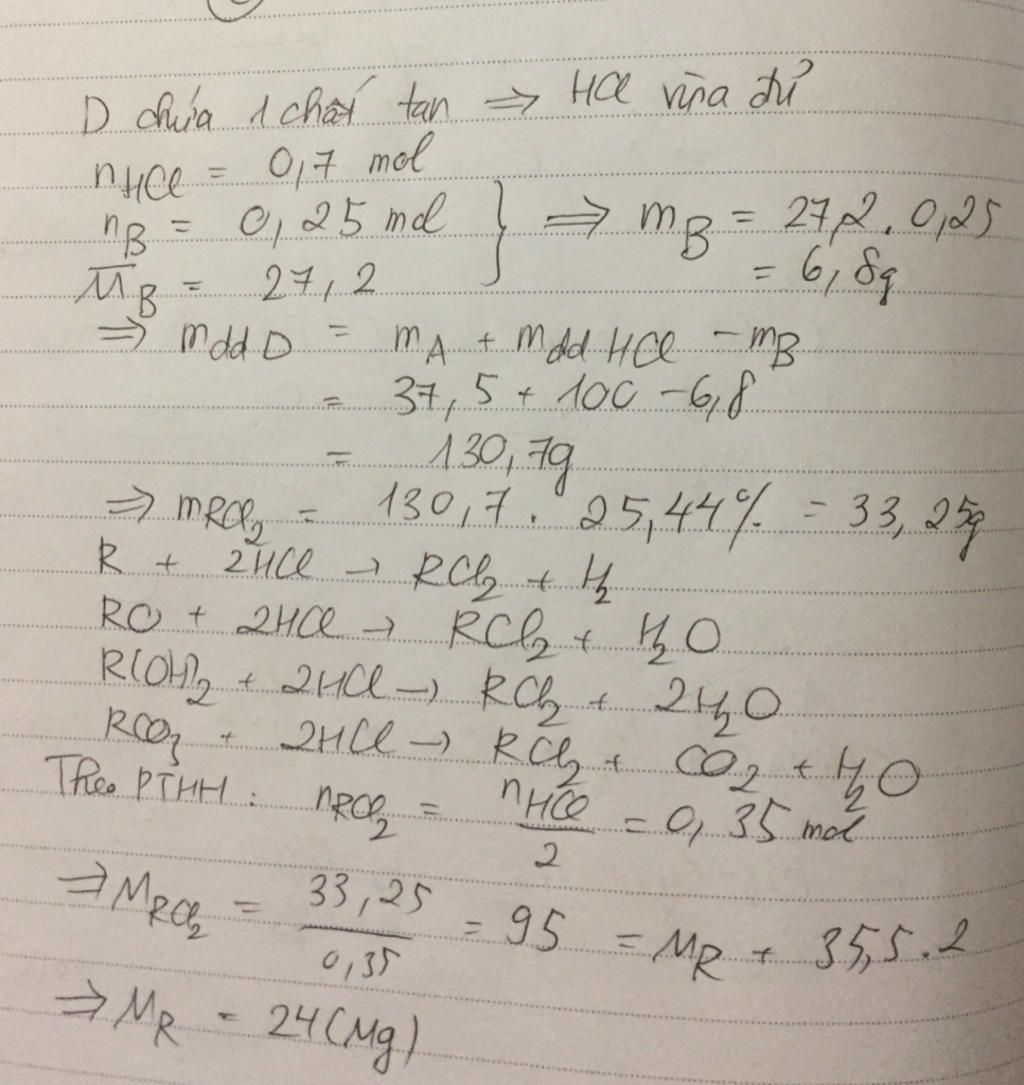 D chứa 1 chất tan ⇒ HCl vừa đủ
nHCl = 0,7 mol
nB = 0,25 mol
M̅B = 27,2 } ⇒ mB = 27,2 . 0,25
= 6,8g
⇒ mdd D = mA + mdd HCl - mB
= 37,5 + 100 - 6,8
= 130,7g
⇒ mRCl2 = 130,7 . 25,44% = 33,25g
R + 2HCl → RCl2 + H2
RO + 2HCl → RCl2 + H2O
R(OH)2 + 2HCl → RCl2 + 2H2O
RCO3 + 2HCl → RCl2 + CO2 + H2O
Theo PTHH : nRCl2 = nHCl / 2 = 0,35 mol
⇒ MRCl2 = 33,25 / 0,35 = 95 = MR + 35,5.2
⇒ MR = 24 (Mg)